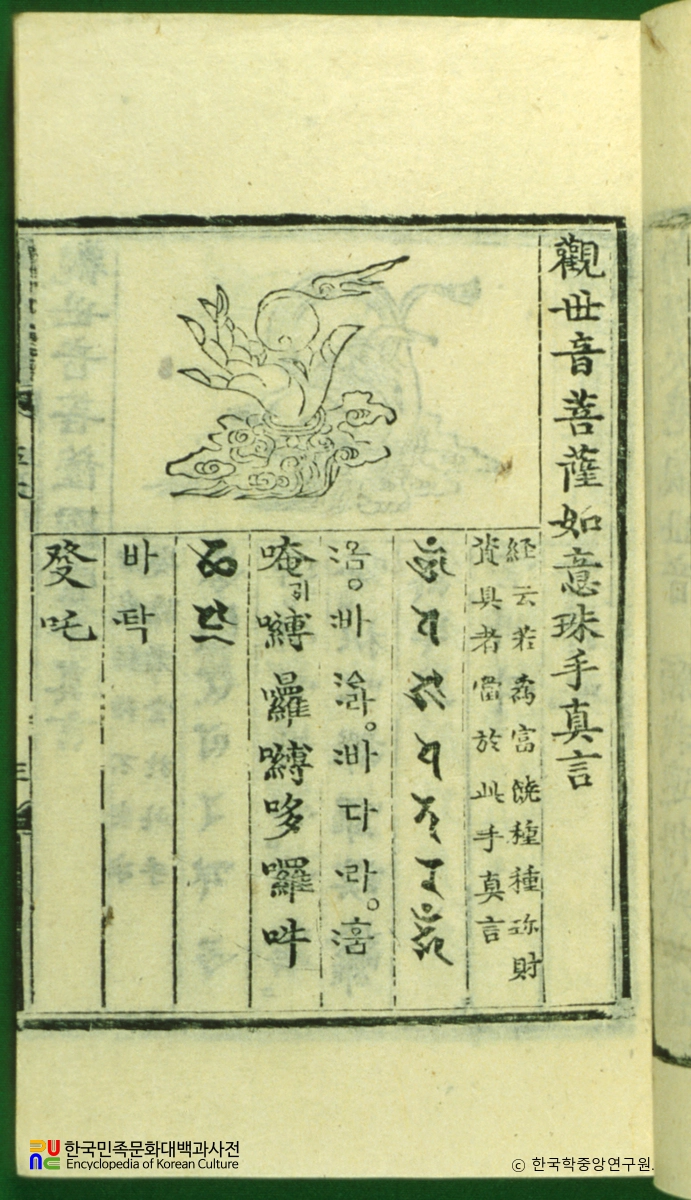 觀世音菩薩如意珠手真言
経云若爲富饒種種珎財
資具者當於此手真言
옴。바ᅀᅳ라。바다라。훔
唵引嚩囉嚩哆囉吽
바탁
癹吒
한국민족문화대백과사전
Encyclopedia of Korean Culture
ⓒ 한국학중앙연구원.